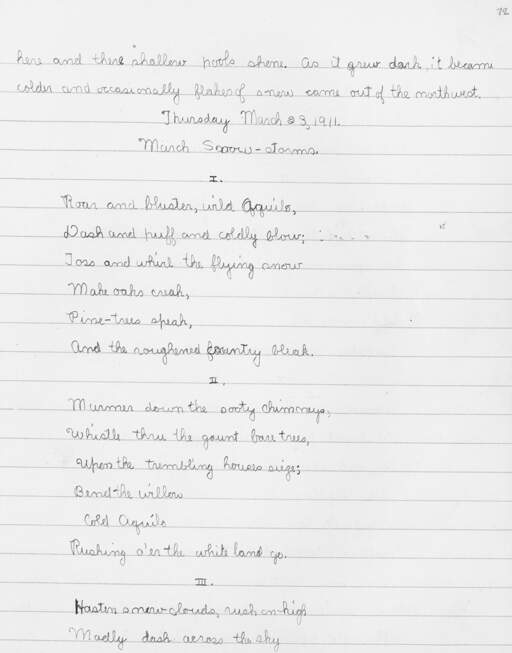 72
here and there shallow pools shone. As it grew dark, it became
colder and occasionally flakes of snow came out of the northwest.
Thursday March 23, 1911.
March Snow-storms.
I.
Roar and bluster, wild Aquilo,
Dash and puff and coldly blow;
Toss and whirl the flying snow
Make oaks creak,
Pine-trees speak,
And the roughened country bleak.
II.
Murmer down the sooty chimneys,
Whistle thru the gaunt bare trees,
Upon the trembling houses seize;
Bend the willow
Cold Aquilo
Rushing o'er the white land go.
III.
Hasten snow clouds, rush on high
Madly dash across the sky